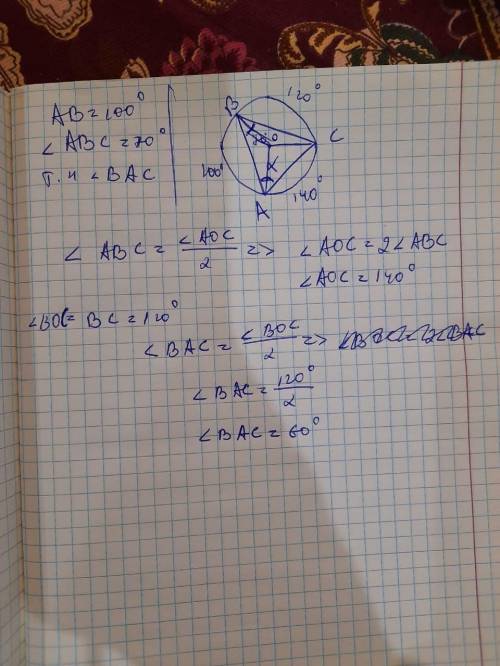 AB = 100°
∠ ABC = 70°
т. н ∠ BAC
B
120°
C
100°
O
A
140°
∠ ABC = ∠AOC / 2 => ∠ AOC = 2∠ABC
∠ AOC = 140°
∠BOC = BC = 120°
∠ BAC = ∠BOC / 2 =>
∠ BAC = 120° / 2
∠ BAC = 60°